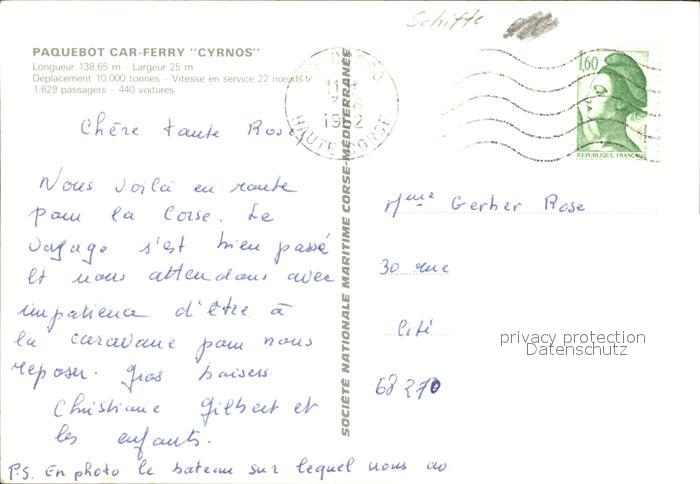 Schiffe
PAQUEBOT CAR-FERRY "CYRNOS"
Longueur 138,65 m - Largeur 25 m
Déplacement 10.000 tonnes - Vitesse en service 22 nœuds
1.629 passagers - 440 voitures
HAUTE CORSE
1,60
REPUBLIQUE FRANÇAISE
SOCIÉTÉ NATIONALE MARITIME CORSE-MÉDITERRANÉE
Chère tante Rose,
Nous voilà en route
pour la Corse. Le
voyage s'est bien passé
et nous attendons avec
impatience d'être à
la caravane pour nous
reposer. Gros baisers
Christiane Gilbert et
les enfants.
P.S. En photo le bateau sur lequel nous
Mme Gerber Rose
30 rue
Cité
68270
privacy protection
Datenschutz